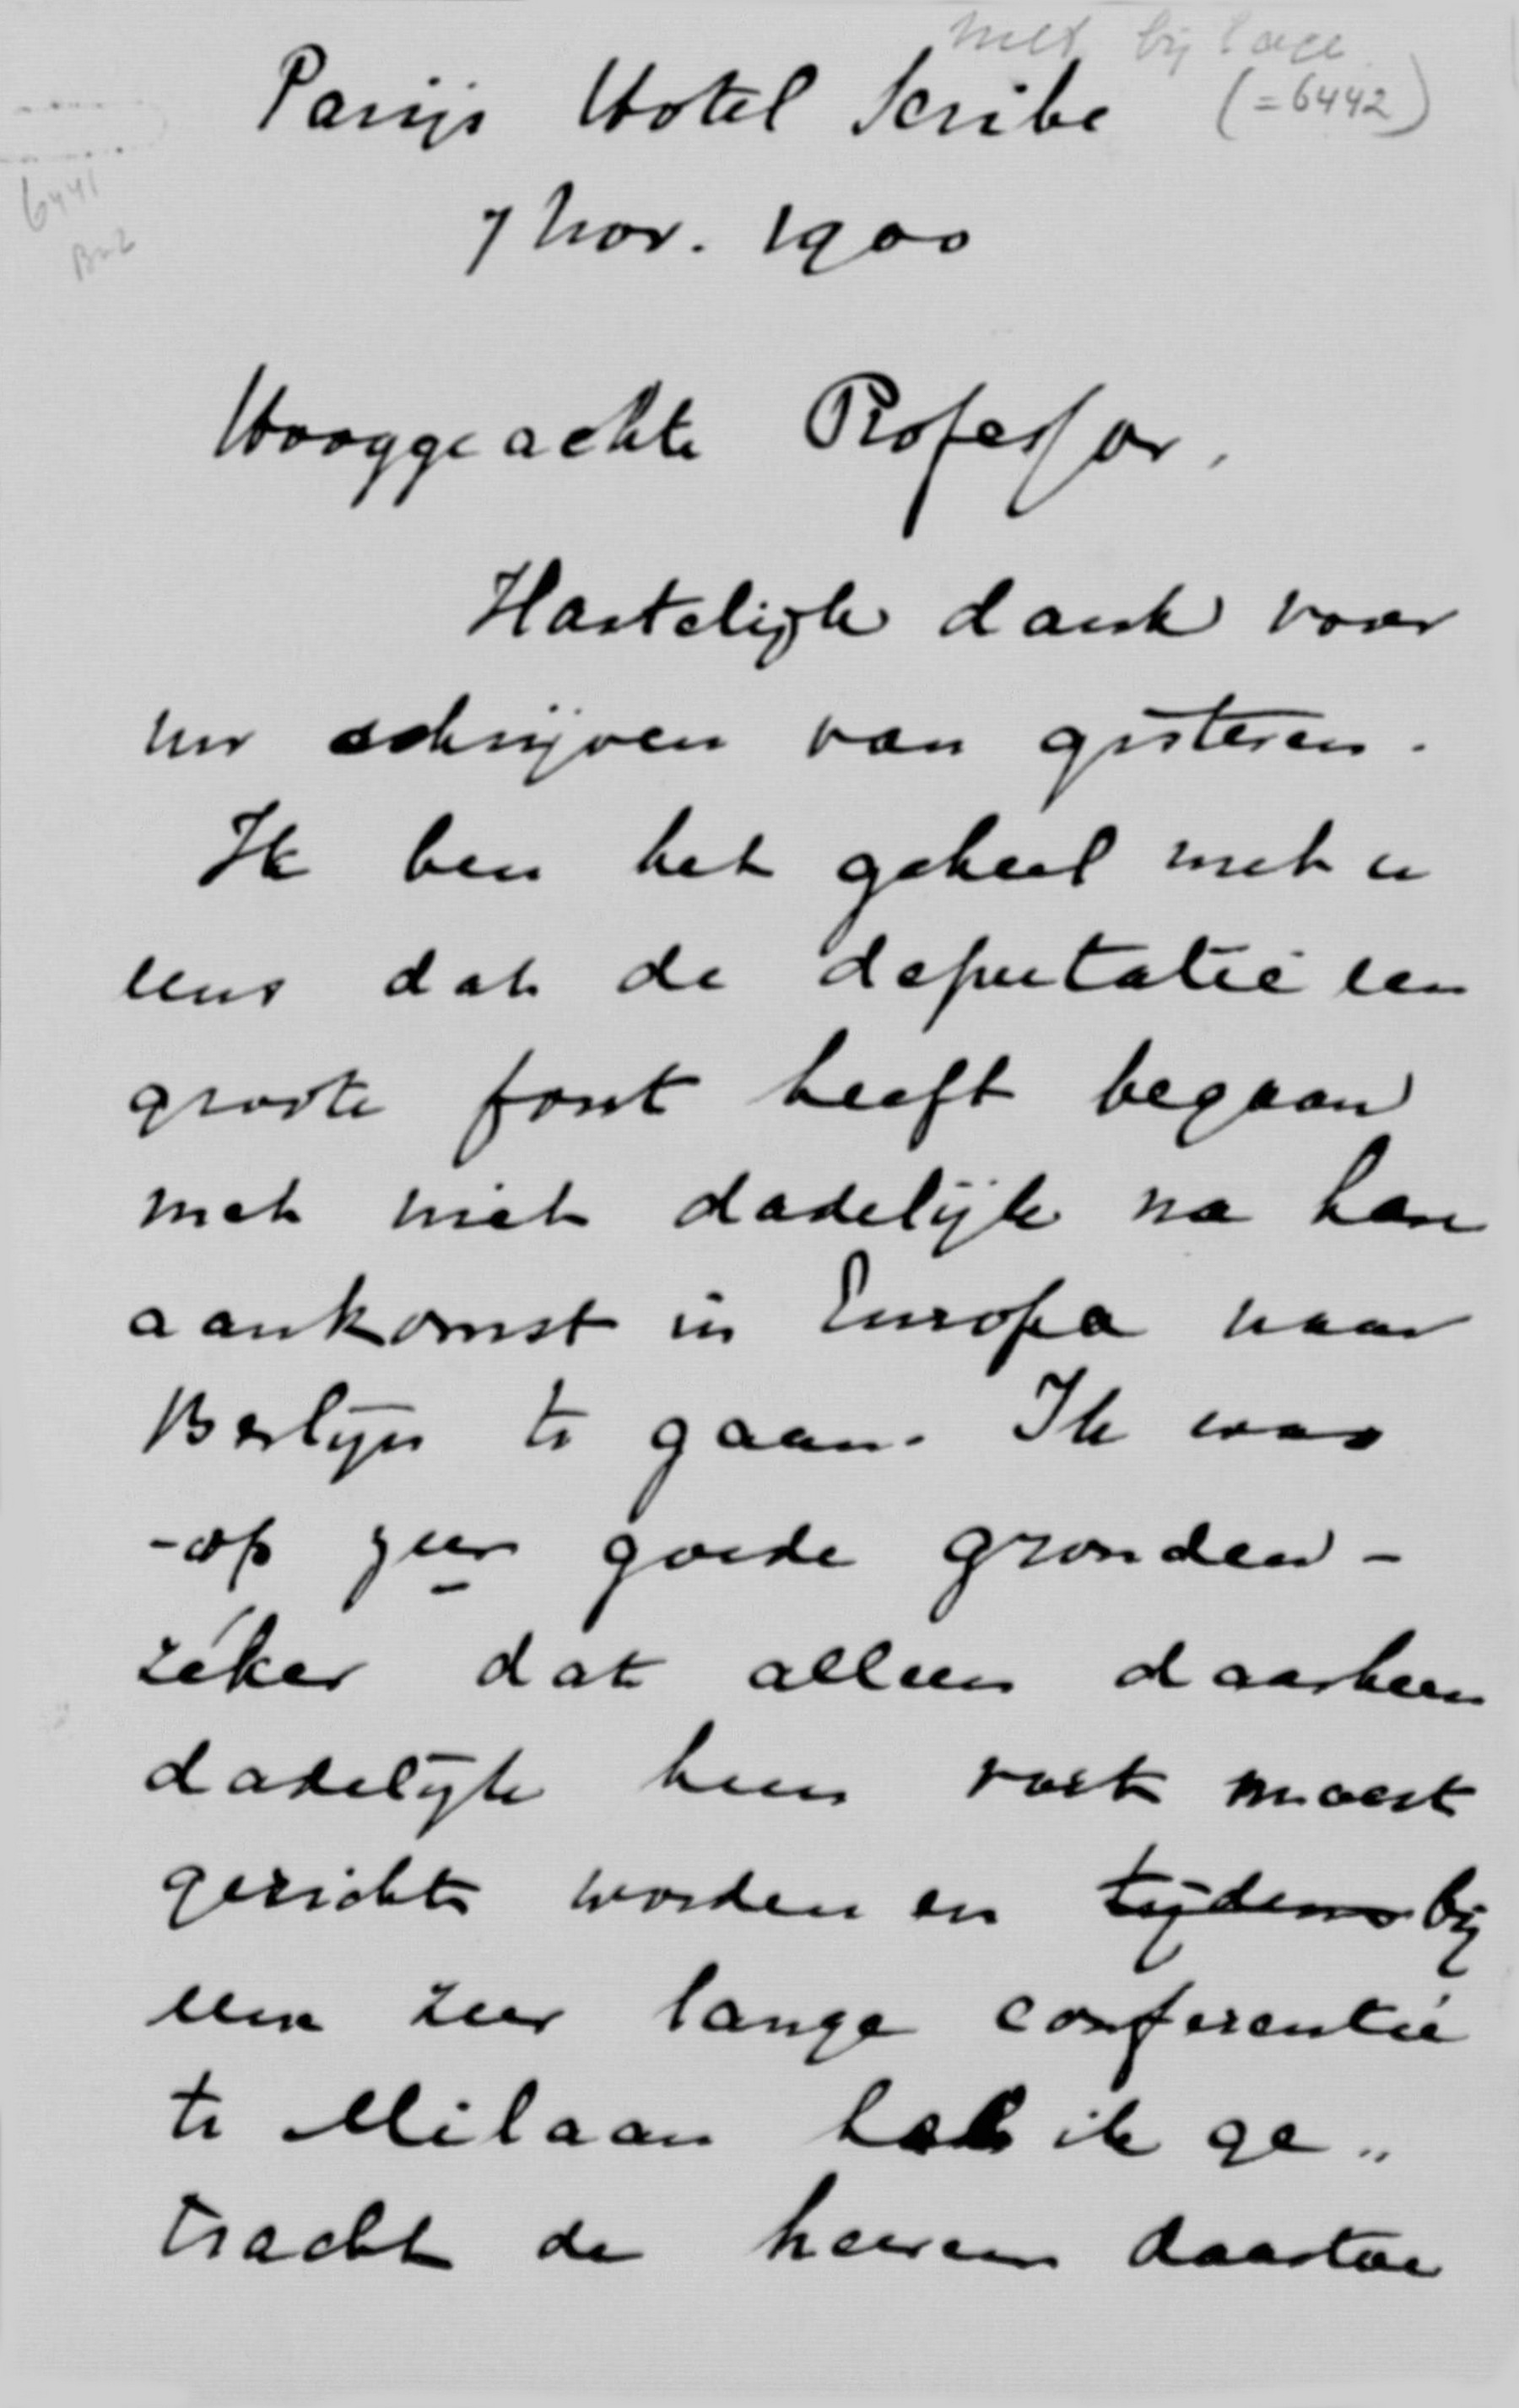 met bijlage
(=6442)
6441
Parijs Hotel Scribe
7 Nov. 1900
Hooggeachte Professor,
Hartelijk dank voor
uw schrijven van gisteren.
Ik ben het geheel met u
eens dat de deputatie een
groote fout heeft begaan
met niet dadelijk na hare
aankomst in Europa naar
Berlijn te gaan. Ik was
-op zeer goede gronden-
zéker dat alleen daarheen
dadelijk hun reis moest
gericht worden en tijdens bij
eene zeer lange conferentie
te Milaan heb ik ge„
tracht de heeren daartoe